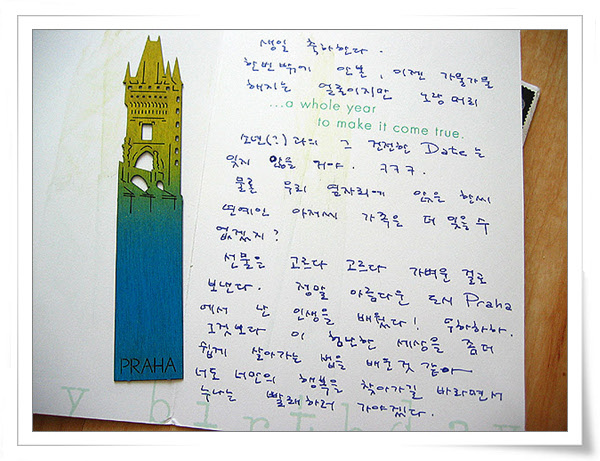 생일 축하한다.
한번밖에 안본, 이젠 가물가물
해지는 얼굴이지만 노랑머리
...a whole year
to make it come true.
소년(?)과의 그 건전한 Date는
잊지 않을 거야. ㅋㅋㅋ.
물론 우리 옆자리에 앉은 한씨
연예인 아저씨 가족은 더 잊을 수
없겠지?
선물은 고르다 고르다 가벼운 걸로
보낸다. 정말 아름다운 도시 Praha
에서 난 인생을 배웠다! 우하하하.
그것보다 이 험난한 세상을 좀더
쉽게 살아가는 법을 배운것 같아
너도 너만의 행복을 찾아가길 바라면서
누나는 빨래하러 가야겠다.
PRAHA
y birthday